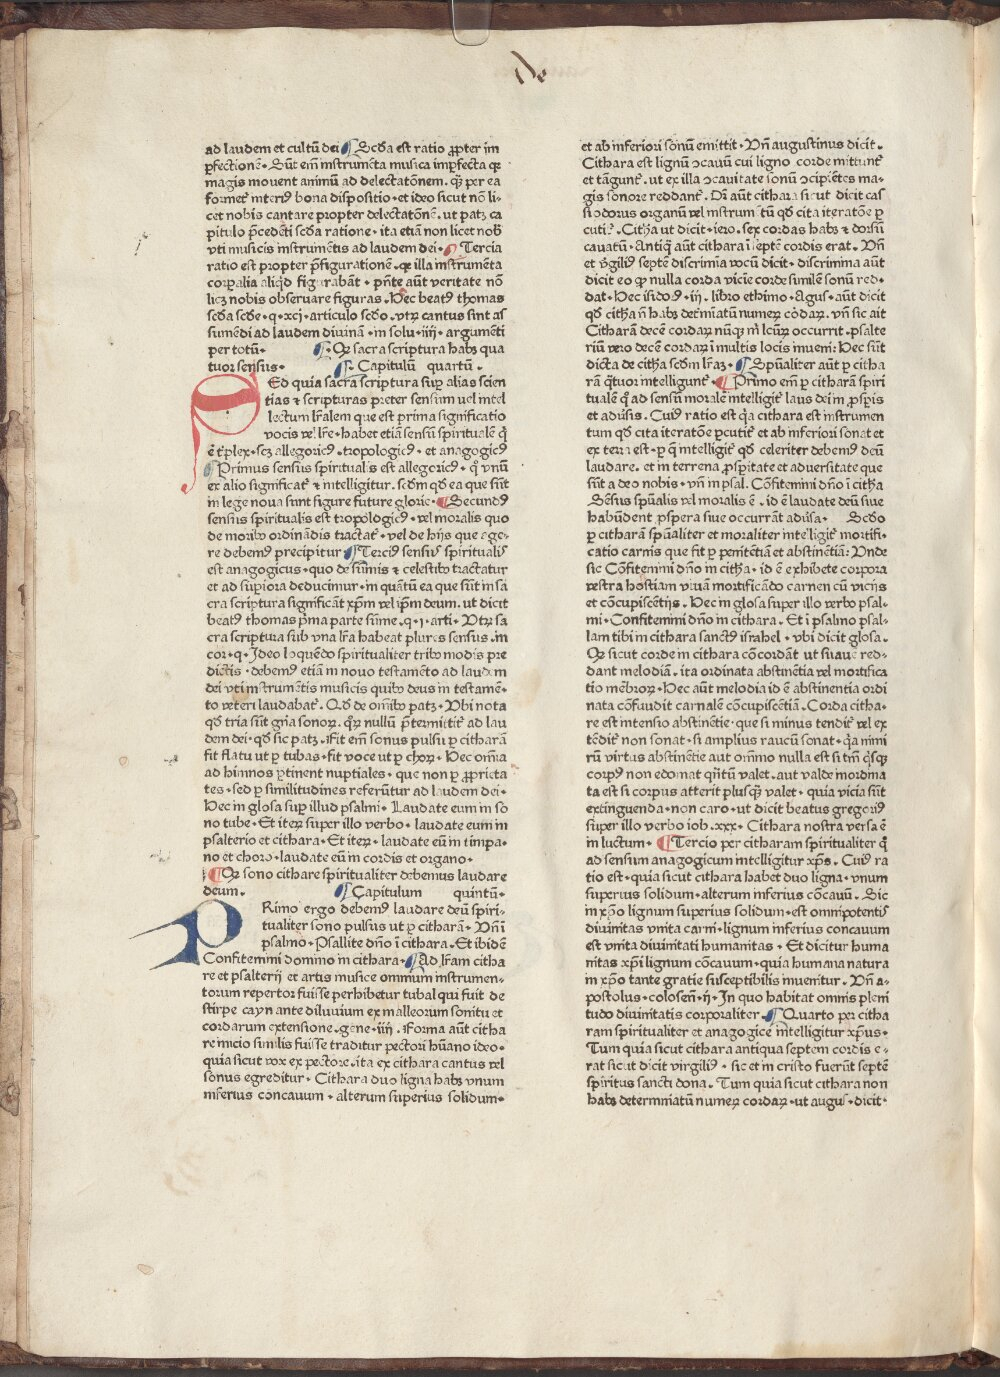 De
ad laudem et cultū dei ¶ Scđa est ratio ꝓpter im
ꝑfectionē. Sūt em̄ instrumēta musica imꝑfecta qꝛ
magis mouent animū ad delectatōnem. qꝫ per ea
formet᷑ interiꝰ bona dispositio. et ideo sicut nō li-
cet nobis cantare propter delectatōnē. ut patꝫ ca
pitulo p̄cedēti scđa ratione. ita etiā non licet nob̄
vti musicis instrumētis ad laudem dei. ¶ Tercia
ratio est propter p̄figurationē. qꝛ illa instrumēta
corꝑalia aliqđ figurabāt. p̄nte aūt veritate nō
licꝫ nobis obseruare figuras. Hec beatꝰ thomas
scđa scđe. q. xcj. articulo scđo. vtꝝ cantus sint as
sumēdi ad laudem diuinā. in solu. iiij. argumēti
per totū. ¶. Qꝛ sacra scriptura habꝫ qua
tuor sensus. ¶. Capitulū quartū.
SEd quia sacra scriptura suꝑ alias scien
tias ⁊ scripturas preter sensum uel intel
lectum lr̄alem que est prima significatio
vocis vel lr̄e. habet etiā sensū spiritualē q̇
ē tꝰplex. scꝫ allegoricꝰ. tropologicꝰ. et anagogicꝰ
¶ Primus sensus spiritualis est allegoricꝰ. q̇ vnū
ex alio significat᷑ ⁊ intelligitur. scđm qđ ea que sūt
in lege noua sunt figure future glorie. ¶ Secundꝰ
sensus spiritualis est tropologicꝰ. vel moralis quo
de moribꝰ ordinādis tractat᷑. vel de hijs que age-
re debemꝰ precipitur ¶ Terciꝰ sensus spiritualis
est anagogicus. quo de sūmis ⁊ celestibꝰ tractatur
et ad suꝑiora deducimur. in quātū ea que sūt in sa
cra scriptura significāt xp̄m vel ip̄m deum. ut dicit
beatꝰ thomas p̄ma parte sūme. q. j. arti. Vtꝝ sa
cra scriptura sub vna lr̄a habeat plures sensus. in
cor. q. Ideo loquēdo spiritualiter tribꝰ modis pre
dictis. debemꝰ etiā in nouo testamēto ad laudem
dei vti instrumētis musicis quibꝰ deus in testamē-
to veteri laudabat᷑. Qđ de om̄ibꝰ patꝫ. Vbi nota
qđ tria sūt gn̄a sonoꝝ. qꝝ nullū p̄termittit᷑ ad lau
dem dei. qđ sic patꝫ. Fit em̄ sonus pulsu ut ꝑ citharā
fit flatu ut ꝑ tubas. fit voce ut ꝑ choꝝ. Hec om̄ia
ad himnos ꝑtinent nuptiales. que non ꝑ ꝓprieta
tes. sed ꝑ similitudines referūtur ad laudem dei.
Hec in glosa suꝑ illud psalmi. Laudate eum in so
no tube. Et iteꝝ super illo verbo. laudate eum in
psalterio et cithara. Et iteꝝ. laudate eū in timpa-
no et choro. laudate eū in cordis et organo.
¶ Qꝛ sono cithare spiritualiter debemus laudare
deum. ¶ Capitulum quintū.
PRimo ergo debemꝰ laudare deū spiri-
tualiter sono pulsus ut ꝑ citharā. Vn̄ i
psalmo. Psallite dn̄o ī cithara. Et ibidē
Confitemini domino in cithara. ¶ Ad lr̄am citha
re et psalterij et artis musice omnium instrumen-
torum repertor fuisse perhibetur tubal qui fuit de
stirpe cayn ante diluuium ex malleorum sonitu et
cordarum extensione. gene. iiij. Forma aūt citha
re inicio similis fuisse traditur pectori hūano ideo.
quia sicut vox ex pectore. ita ex cithara cantus vel
sonus egreditur. Cithara duo ligna habꝫ vnum
inferius concauum. alterum superius solidum.
et ab inferiori sonū emittit. Vn̄ augustinus dicit.
Cithara est lignū ꝯcauū cui ligno corde mittunt᷑
et tāgunt᷑. ut ex illa ꝯcauitate sonū ꝯcipiētes ma-
gis sonore reddant᷑. Dr̄ aūt cithara sicut dicit cas
siodorus organū vel instrumētū qđ cita iteratōne ꝑ
cutit᷑. Citħa ut dicit. iero. sex cordas habꝫ ⁊ dorsū
cauatū. Antiq̇ aūt cithara ī septē cordis erat. Vn̄
et v̄giliꝰ septē discrimia vocū dicit. discrimina aūt
dicit eo qꝛ nulla corda vicīe corde similē sonū red-
dat. Hec isidoꝰ. iij. libro ethimo. Agus. aūt dicit
qđ citħa n̄ habꝫ det̄miatū numeꝝ cōdaꝝ. vn̄ sic ait
Citharā decē cordaꝝ nūqꝫ in lcūꝝ occurrit. psalte
riū vero decē cordaꝝ ī multis locis inueni: Hec sūt
dicta de citħa scđm lr̄aꝫ. ¶ Sp̄ualiter aūt ꝑ citha
rā q̇tuor intelligunt᷑. ¶ Primo em̄ ꝑ citharā spiri
tualē q̇ ad sensū moralē intelligit᷑ laus dei in ꝓspis
et adūsis. Cuiꝰ ratio est q̇a cithara est instrumen
tum qđ cita iteratōe ꝑcutit᷑ et ab inferiori sonat et
ex terra est. ꝑ q̇ intelligit᷑ qđ celeriter debemꝰ deū
laudare. et in terrena ꝓsꝑitate et aduersitate que
sūt a deo nobis. vn̄ in psal. Cōfitemini dn̄o ī citħa
Sēsus sp̄ualis vel moralis ē. id ē laudate deū siue
habūdent ꝓspera siue occurrāt adūsa. Scđo
ꝑ citharā sp̄ualiter et moraliter intelligit᷑ mortifi-
catio carnis que fit ꝑ penitētiā et abstinētiā: Vnde
sic Cōfitemini dn̄o in citħa. id ē exhibete corpora
vestra hostiam viuā mortificādo carnen cū vicijs
et cōcupiscētijs. Hec in glosa super illo verbo psal-
mi. Confitemini dn̄o in cithara. Et ī psalmo psal-
lam tibi in cithara sanctꝰ israhel. vbi dicit glosa.
Qꝛ sicut corde in cithara cōcordāt ut suaue red-
dant melodiā. ita ordinata abstinētia vel mortifica
tio mēbroꝝ. Hec aūt melodia id ē abstinentia ordi
nata cōfundit carnalē cōcupiscētiā. Corda citha-
re est intensio abstinētie. que si minus tendit᷑ vel ex
tēdit᷑ non sonat. si amplius raucū sonat. q̇a nimi
rū virtus abstinētie aut omnino nulla est si tm̄ q̇sqꝫ
corpꝰ non edomat q̇ītū valet. aut valde inordina
ta est si corpus atterit plusqꝫ valet. quia vicia sūt
extinguenda. non caro. ut dicit beatus gregoriꝰ
super illo verbo iob. xxx. Cithara nostra versa ē
in luctum. ¶ Tercio per citharam spiritualiter q̇
ad sensum anagogicum intelligitur xp̄s. Cuiꝰ ra
tio est. quia sicut cithara habet duo ligna. vnum
superius solidum. alterum inferius cōcauū. Sic
in xp̄o lignum superius solidum. est omnipotentis
diuinitas vnita carni. lignum inferius concauum
est vnita diuinitati humanitas. Et dicitur huma
nitas xp̄i lignum cōcauum. quia humana natura
in xp̄o tante gratie susceptibilis inuenitur. Vn̄ a-
postolus. colosen̄. ij. In quo habitat omnis pleni
tudo diuinitatis corporaliter. ¶ Quarto per citha
ram spiritualiter et anagogice intelligitur xp̄us.
Tum quia sicut cithara antiqua septem cordis e-
rat sicut dicit virgiliꝰ. sic et in cristo fuerūt septē
spiritus sancti dona. Tum quia sicut cithara non
habꝫ determinatū numeꝝ cordaꝝ. ut augus. dicit.